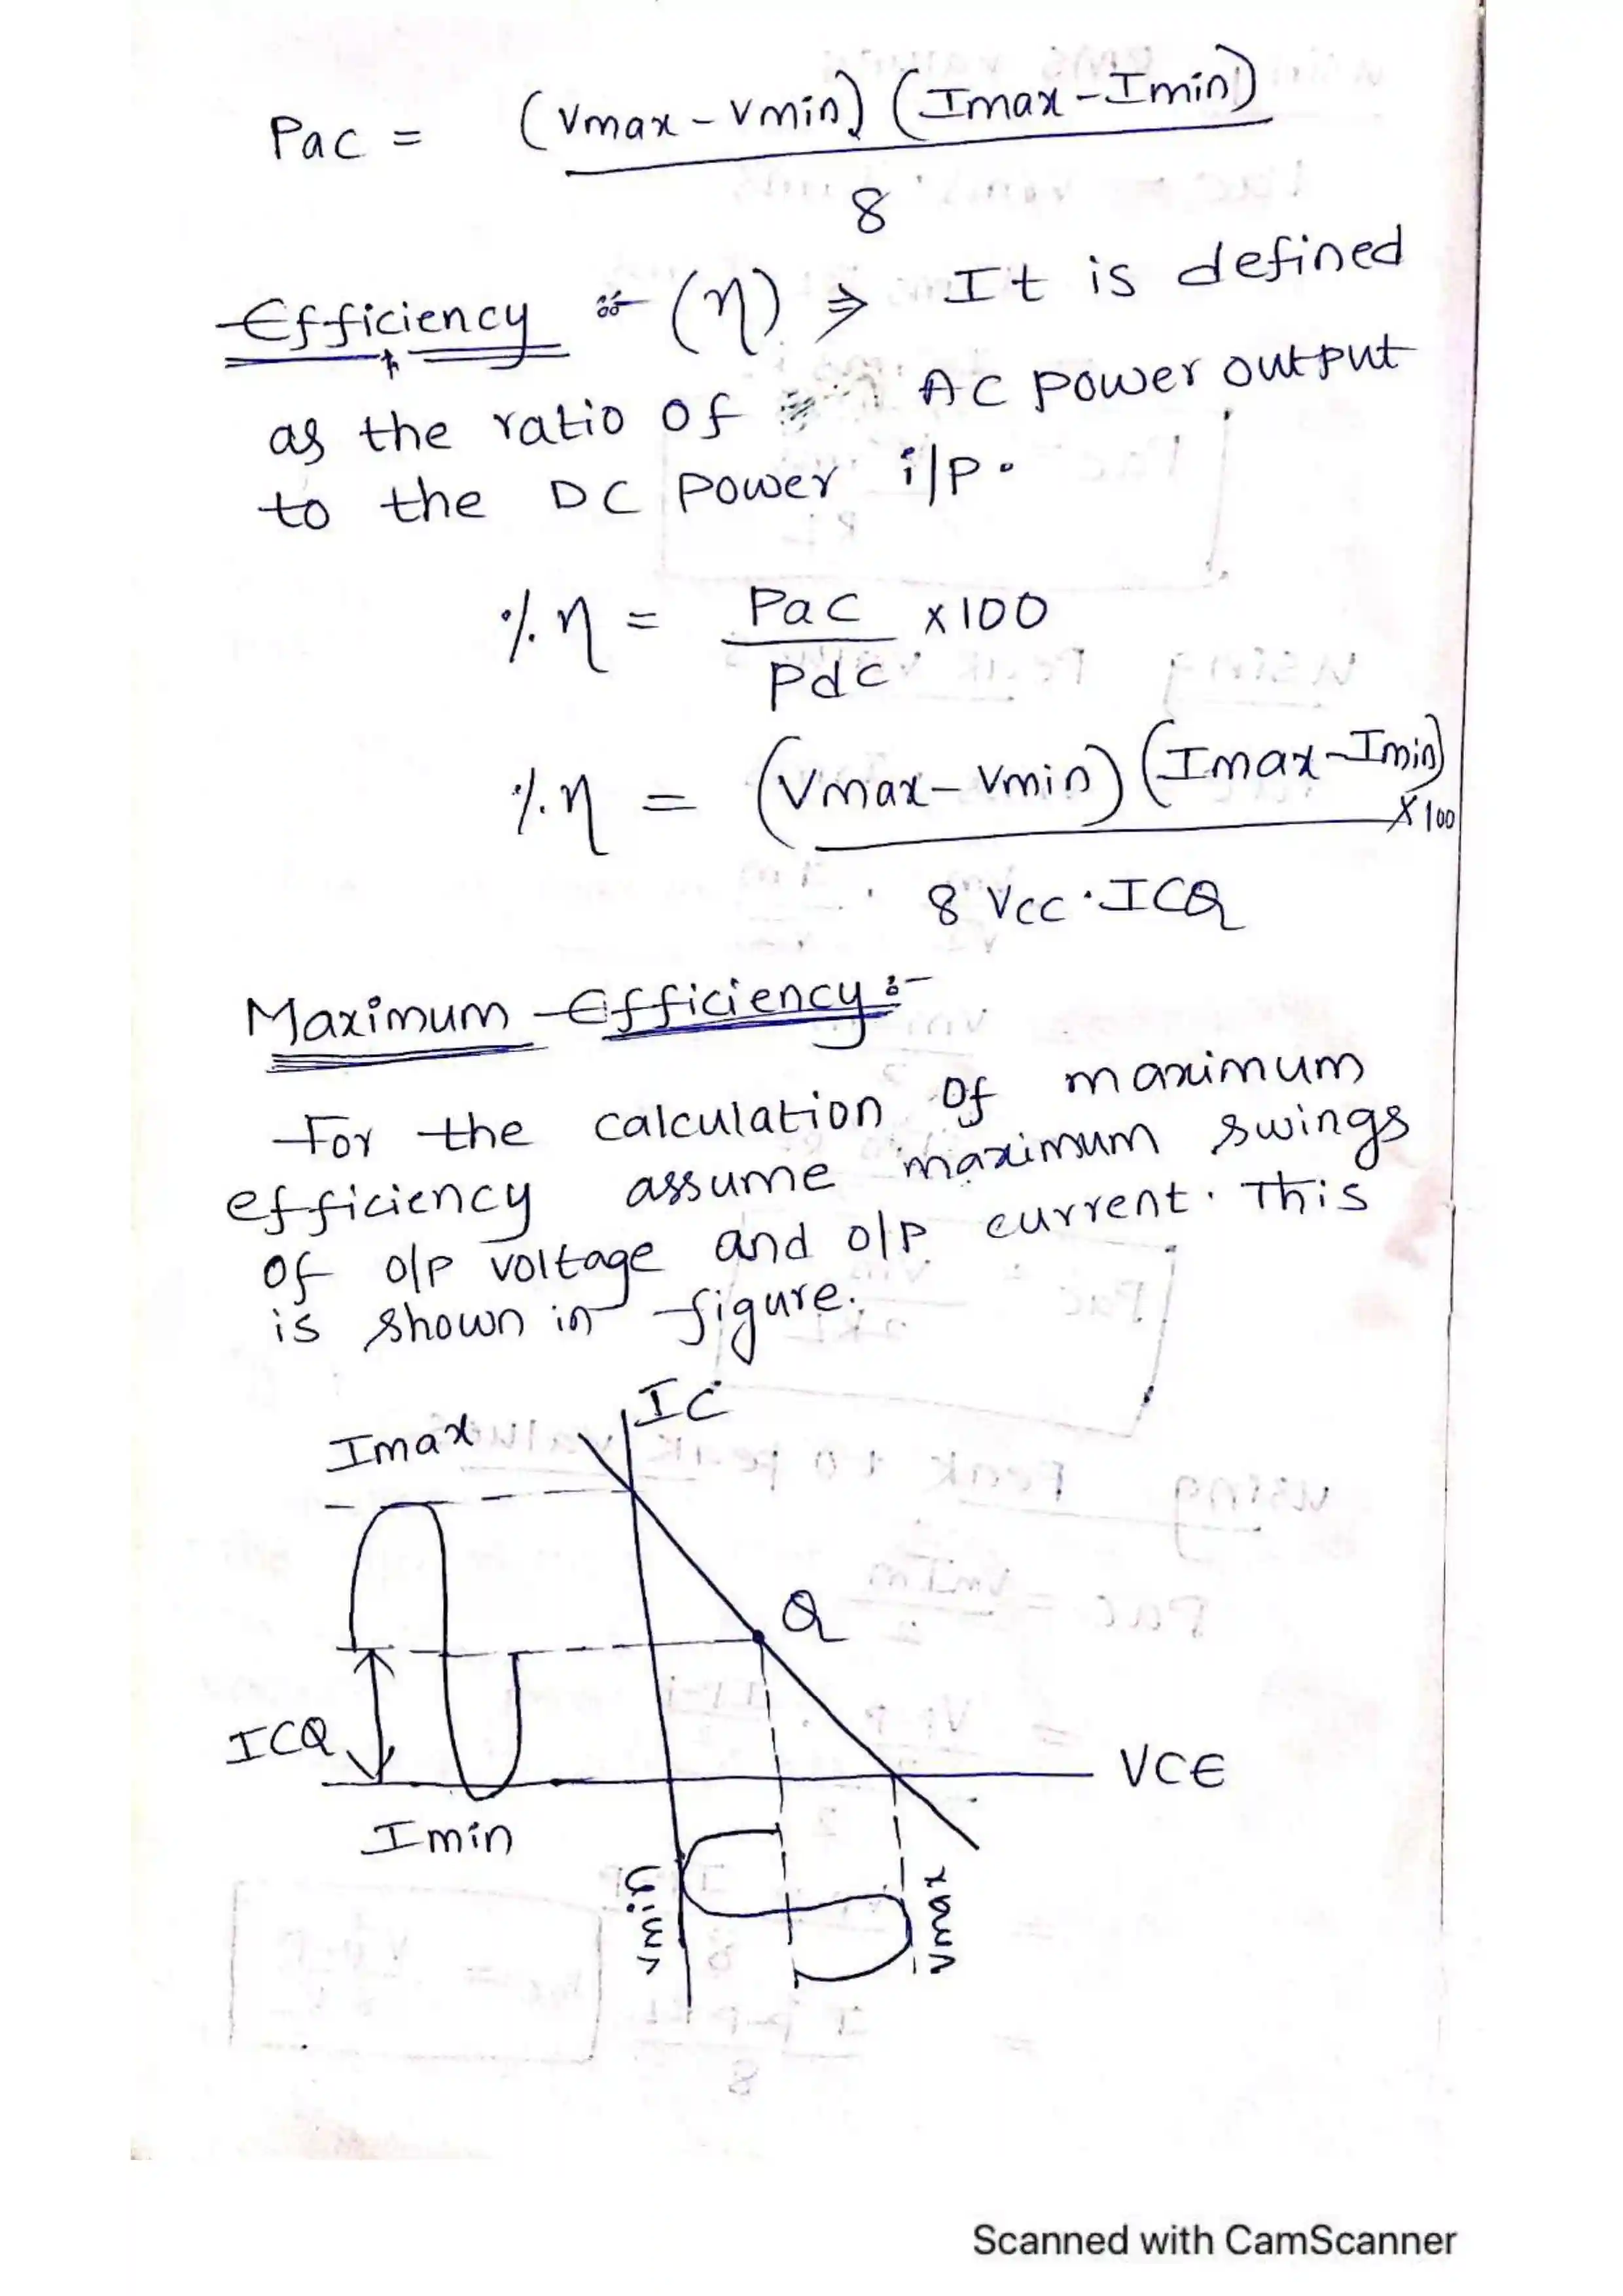 Pac = (Vmax - Vmin) (Imax - Imin)
8
Efficiency :- (η) ⇒ It is defined
as the ratio of AC power output
to the DC power i/p.
% η = Pac x 100
Pdc
% η = (Vmax - Vmin) (Imax - Imin) x 100
8 Vcc · ICQ
Maximum Efficiency :-
For the calculation of maximum
efficiency assume maximum swings
of o/p voltage and o/p current. This
is shown in figure.
IC
Imax
Q
ICQ
VCE
Imin
Vmin
Vmax
Scanned with CamScanner